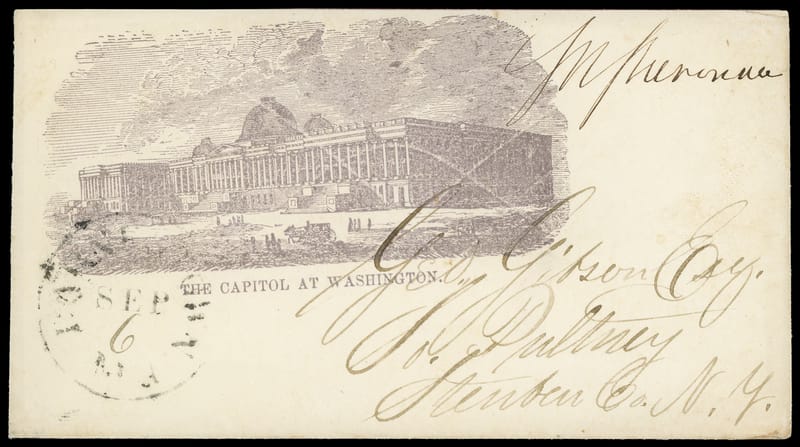 THE CAPITOL AT WASHINGTON.
SEP
6
Geo. Gibson Esq.
So. Pultney
Steuben Co. N. Y.